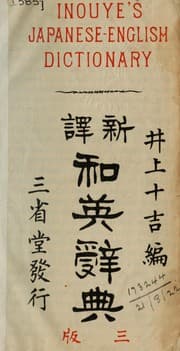 INOUYE'S
JAPANESE-ENGLISH
DICTIONARY
井上十吉編
新譯
和英辭典
三省堂發行
三版
193244
21/3/22